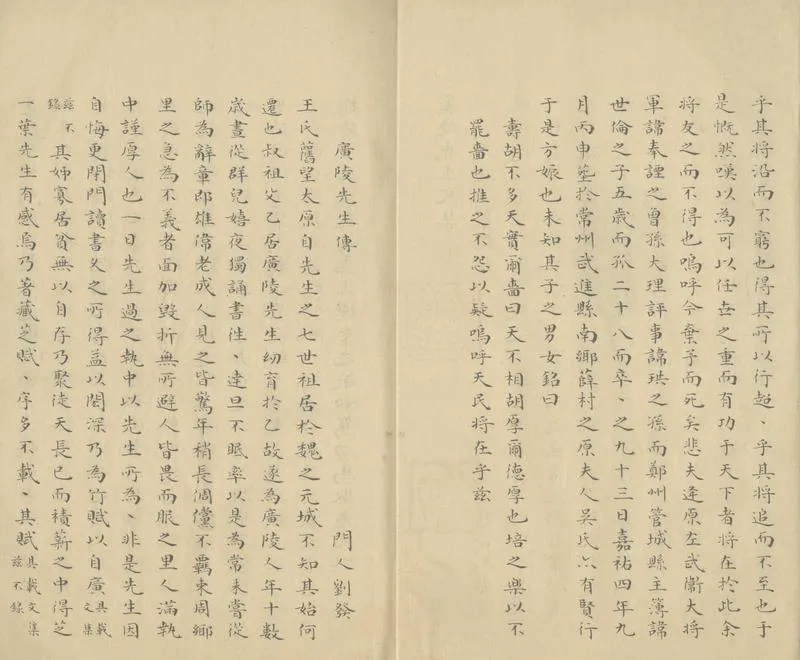 乎其將沿而不窮也得其所以行超、乎其將追而不至也于
是慨然嘆以為可以任世之重而有功于天下者將在於此余
將友之而不得也嗚呼今棄予而死矣悲夫逢原左武衞大將
軍諱奉諲之曾孫大理評事諱珙之孫而鄭州管城縣主簿諱
世倫之子五歲而孤二十八而卒、之九十三日嘉祐四年九
月丙申葬於常州武進縣南鄉薛村之原夫人吳氏亦有賢行
于是方娠也未知其子之男女銘曰
壽胡不多天實爾嗇曰天不相胡厚爾德厚也培之樂以不
罷嗇也推之不怨以疑嗚呼天民將在乎茲
廣陵先生傳
門人劉發
王氏舊望太原自先生之七世祖居於魏之元城不知其始何
遷也叔祖父乙居廣陵先生幼育於乙故遂為廣陵人年十數
歲晝從群兒嬉夜獨誦書往、達旦不眠率以是為常未嘗從
師為辭章即雄偉老成人見之皆驚年稍長倜儻不羈束周鄉
里之急為不義者面加毀折無所避人皆畏而服之里人滿執
中謹厚人也一日先生過之執中以先生所為、非是先生因
自悔更閉門讀書久之所得益以閎深乃為竹賦以自廣其載文集
茲不錄其姊寡居貧無以自存乃聚徒天長已而積薪之中得芝
一葉先生有感焉乃著藏芝賦、序多不載、其賦具載文集茲不錄